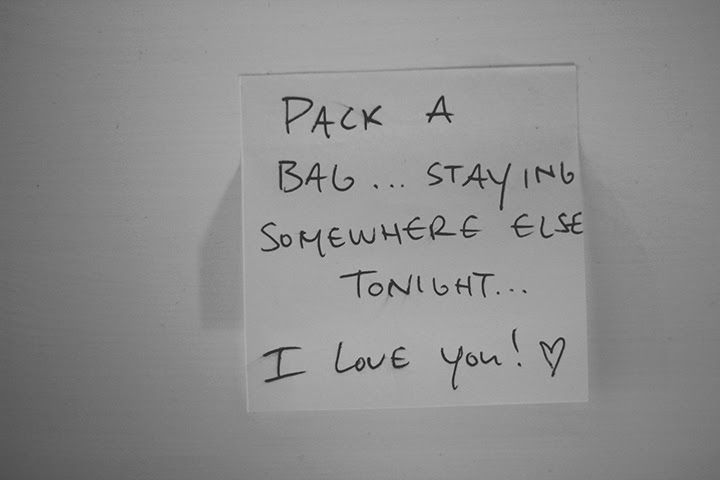 PACK A
BAG... STAYING
SOMEWHERE ELSE
TONIGHT...
I LOVE you! ♡